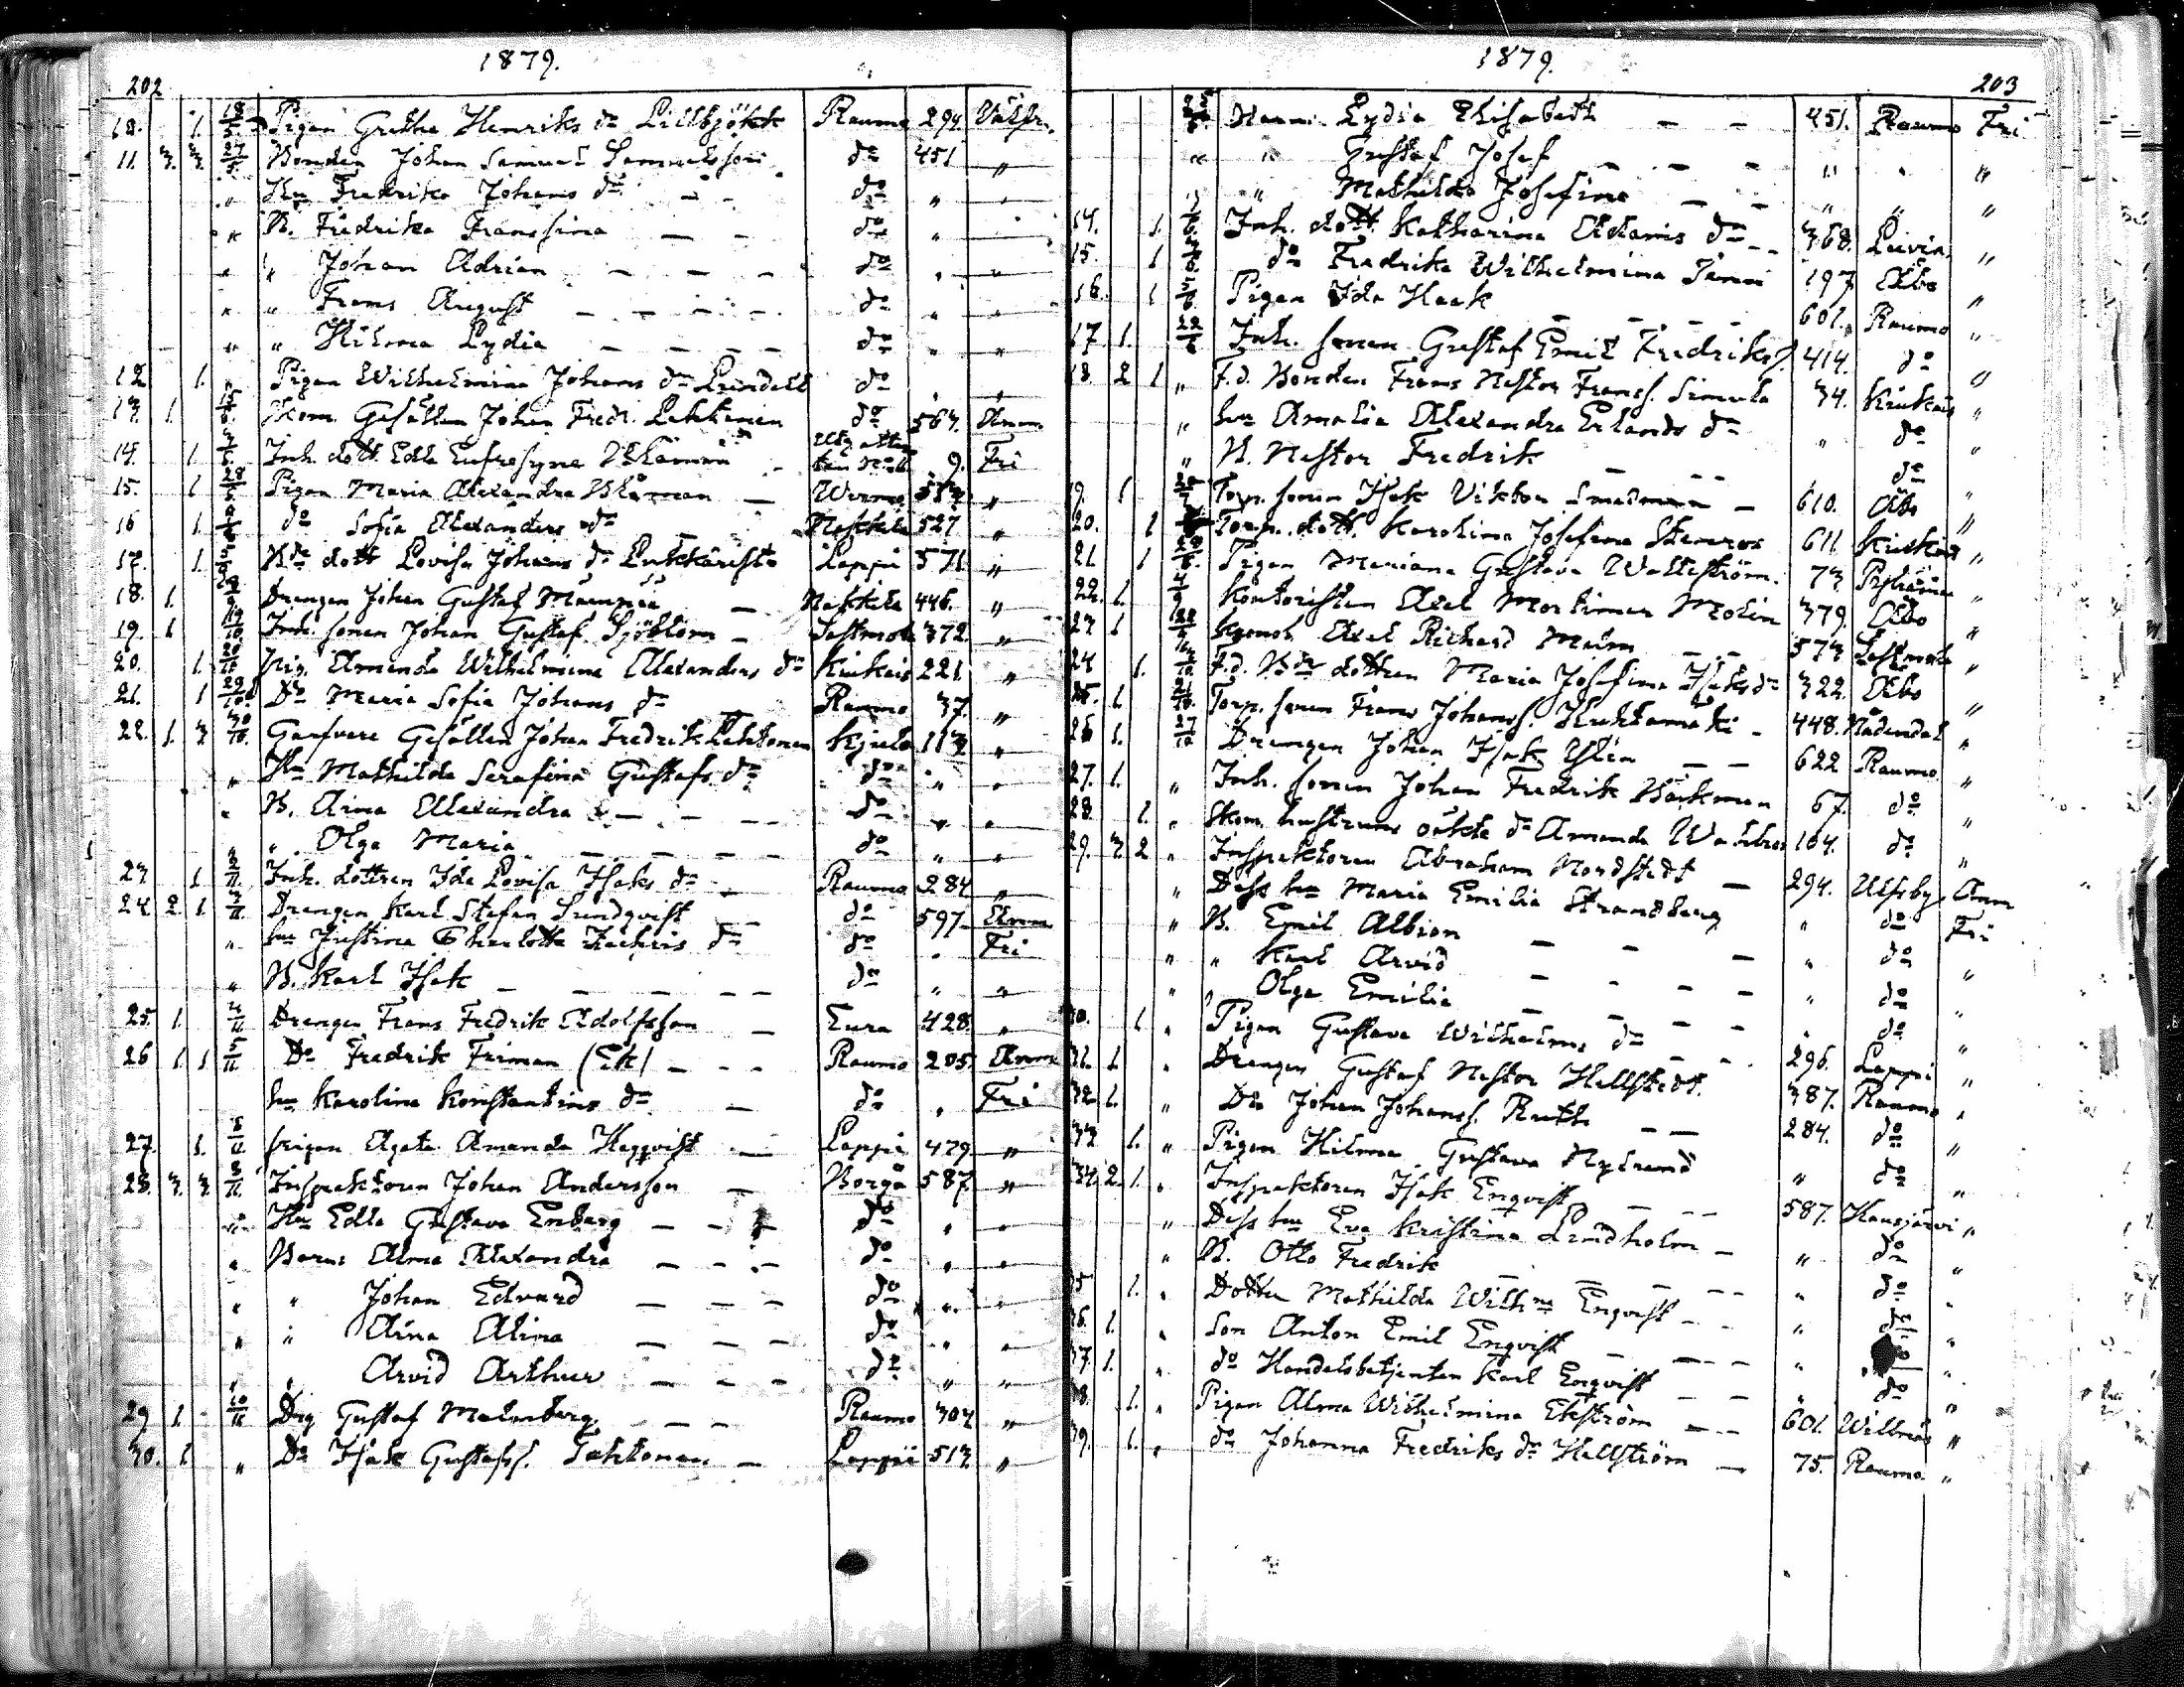 1879.
202
18. 1. 18/5 Pigan Gretha Henriks dr Lillbjökk Raumo 294
11. 3. 3. 27/5 Bonden Johan Samuel Samuelsson do 451 "
" Hu Fredrika Johans dr - - do " "
" B. Fredrika Franssina - - do " "
" " Johan Adrian - - - do " "
" " Frans August - - - - do " "
" " Hilma Lydia - - - - do " "
12 1. Pigan Wilhelmina Johans dr Lindell do " "
13. 1. Skom. Gesällen Johan Fredr. Lehtinen do 567. Anm
14. 1 Inh. dott. Edla Eufrosyne 9. Fri
15. 1 28 Pigan Maria Alexandra - "
16 1. do Sofia Alexanders dr - 527 "
17. 1. Bde dott Lovisa Johans dr Lappi 571 "
18. 1. Drengen Johan Gustaf - 446. "
19. 1 Inh. sonen Johan Gustaf Sjöblom - 372. "
20. 1. Pig. Amanda Wilhelmina Alexanders dr Kiukais 221. "
21. 1 29/10 Do Maria Sofia Johans dr Raumo 37. "
22. 1. 3 30/10 Garfvare Gesällen Johan Fredrik Lehtonen Kjulo 113 "
" Hu Mathilda Serafina Gustafs dr do " "
" B. Aina Alexandra - - - do " "
" " Olga Maria - - - - do " "
23. 1 2/11 Inh. dottren Ida Lovisa Isaks dr - Raumo 284 "
24. 2. 1. 3/11 Drengen Karl Stefan Sundqvist - do 597 Anm
" hu Justina Charlotta Zachris dr do " Fri
" B. Karl Isak - - - - - do " "
25. 1. 4/11 Drengen Frans Fredrik Adolfsson - Eura 428. "
26 1. 1 5/11 Do Fredrik Friman (Ek) - - - Raumo 205. Anm
hu Karolina Konstantins dr - do " Fri
27. 1. 8/11 pigan Agata Amanda Hegqvist - Lappi 429. "
28. 3. 3. 8/11 Inspektoren Johan Andersson - Borgå 587. "
" Hu Edla Gustava Enberg - - - do " "
" Barn: Alma Alexandra - - - do " "
" " Johan Edvard - - - do " "
" " Aina Alina - - - do " "
" " Arvid Arthur - - - do " "
29 1. 10/11 Drg Gustaf Malmberg - - - Raumo 303 "
30. 1. " Do Isak Gustafss. Lehtonen - Lappi 513. "
1879.
203
Barn. Lydia Elisabeth - - 451. Raumo Fri
" " Gustaf Josef - - - " " "
" " Mathilda Josefina - - " " "
14. 1. Inh. dott. Katharina Adams dr - - 368. Luvia "
15. 1 do Fredrika Wilhelmina 197 Åbo "
16. 1 Pigan Ida Haak - - - 601. Raumo "
17 1. 22/6 Inh. sonen Gustaf Emil Fredrikss. 414. do "
18. 2 1 " F.d. Bonden Frans Nestor Franss. Simula 34. Kiukais "
" hu Amalia Alexandra Erlands dr " do "
" B. Nestor Fredrik - - - do "
19. 1 Torp. sonen Isak Viktor - 610. Åbo "
20. 1 Torp. dott. Karolina Josefina 611. Kiukais "
21 1 Pigan Mariana Gustava Wallström. 73. "
22. 1. 4/9 Kontoristen Axel Mortimer Molin 379. Åbo "
23 1 Axel Richard Malm - - 573 "
24 1. F.d. Bde dottren Maria Josefina Isaks dr 322. Åbo "
25. 1. Torp. sonen Frans Johanss. - 448. Nådendal "
26 1. 27/10 Drengen Johan Isak - - 622 Raumo "
27. 1. " Inh. sonen Johan Fredrik Bäckman 67. do "
28. 1. " Skom. hustruns oäkta dr Amanda 164. do "
29. 3. 2 " Inspektoren Abraham Nordstedt - 294. Ulfsby Anm
" Dess hu Maria Emilia Strandberg " do Fri
" B. Emil Albion - - - " do "
" " Karl Arvid - - - - " do "
" " Olga Emilia - - - - " do "
30. 1. " Pigan Gustava Wilhelms dr - - 296. Lappi "
31. 1. " Drengen Gustaf Nestor Hellstedt. 387. Raumo "
32. 1. " Do Johan Johanss. Ruth - - 284. do "
33. 1. " Pigan Hilma Gustava Nylund " do "
34. 2. 1. " Inspektoren Isak Enqvist - - - 587. Hausjärvi "
" Dess hu Eva Kristina Lindholm - " do "
" B. Otto Fredrik - - - - " do "
35 1. " Dotter Mathilda Wilhna Enqvist - - " do "
36. 1. " Son Anton Emil Enqvist - - - " "
37. 1. " do Handelsbetjenten Karl Enqvist - - " do "
38. 1. " Pigan Alma Wilhelmina Ekström - - 601. Willnäs "
39. 1. " do Johanna Fredriks dr Hellström - 75. Raumo "